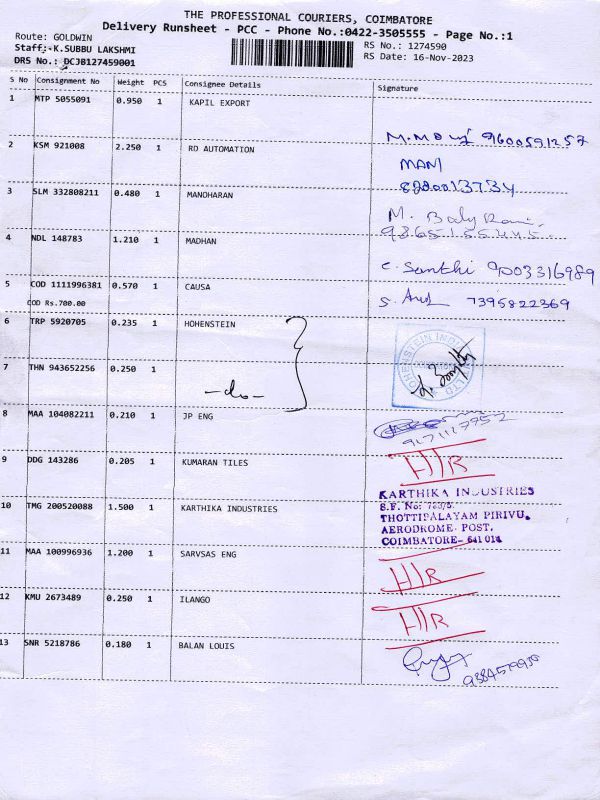 THE PROFESSIONAL COURIERS, COIMBATORE
Delivery Runsheet - PCC - Phone No.:0422-3505555 - Page No.:1
Route: GOLDWIN
RS No.: 1274590
Staff:-K.SUBBU LAKSHMI
RS Date: 16-Nov-2023
DRS No.: DCJB127459001
S No Consignment No Weight PCS Consignee Details Signature
1 MTP 5055091 0.950 1 KAPIL EXPORT
9600591257
2 KSM 921008 2.250 1 RD AUTOMATION
MANI
8220013734
3 SLM 332808211 0.480 1 MANOHARAN
M.
9865155445
4 NDL 148783 1.210 1 MADHAN
C. Santhi 9003316989
5 COD 1111996381 0.570 1 CAUSA
S. Arul 7395822369
COD Rs.700.00
6 TRP 5920705 0.235 1 HOHENSTEIN
HOHENSTEIN INDIA
7 THN 943652256 0.250 1
-do-
8 MAA 104082211 0.210 1 JP ENG
9171127752
9 DDG 143286 0.205 1 KUMARAN TILES
H/R
10 TMG 200520088 1.500 1 KARTHIKA INDUSTRIES
KARTHIKA INDUSTRIES
S.F. No:
THOTTIPALAYAM PIRIVU,
AERODROME POST,
COIMBATORE- 641 014
11 MAA 100996936 1.200 1 SARVSAS ENG
H/R
12 KMU 2673489 0.250 1 ILANGO
H/R
13 SNR 5218786 0.180 1 BALAN LOUIS